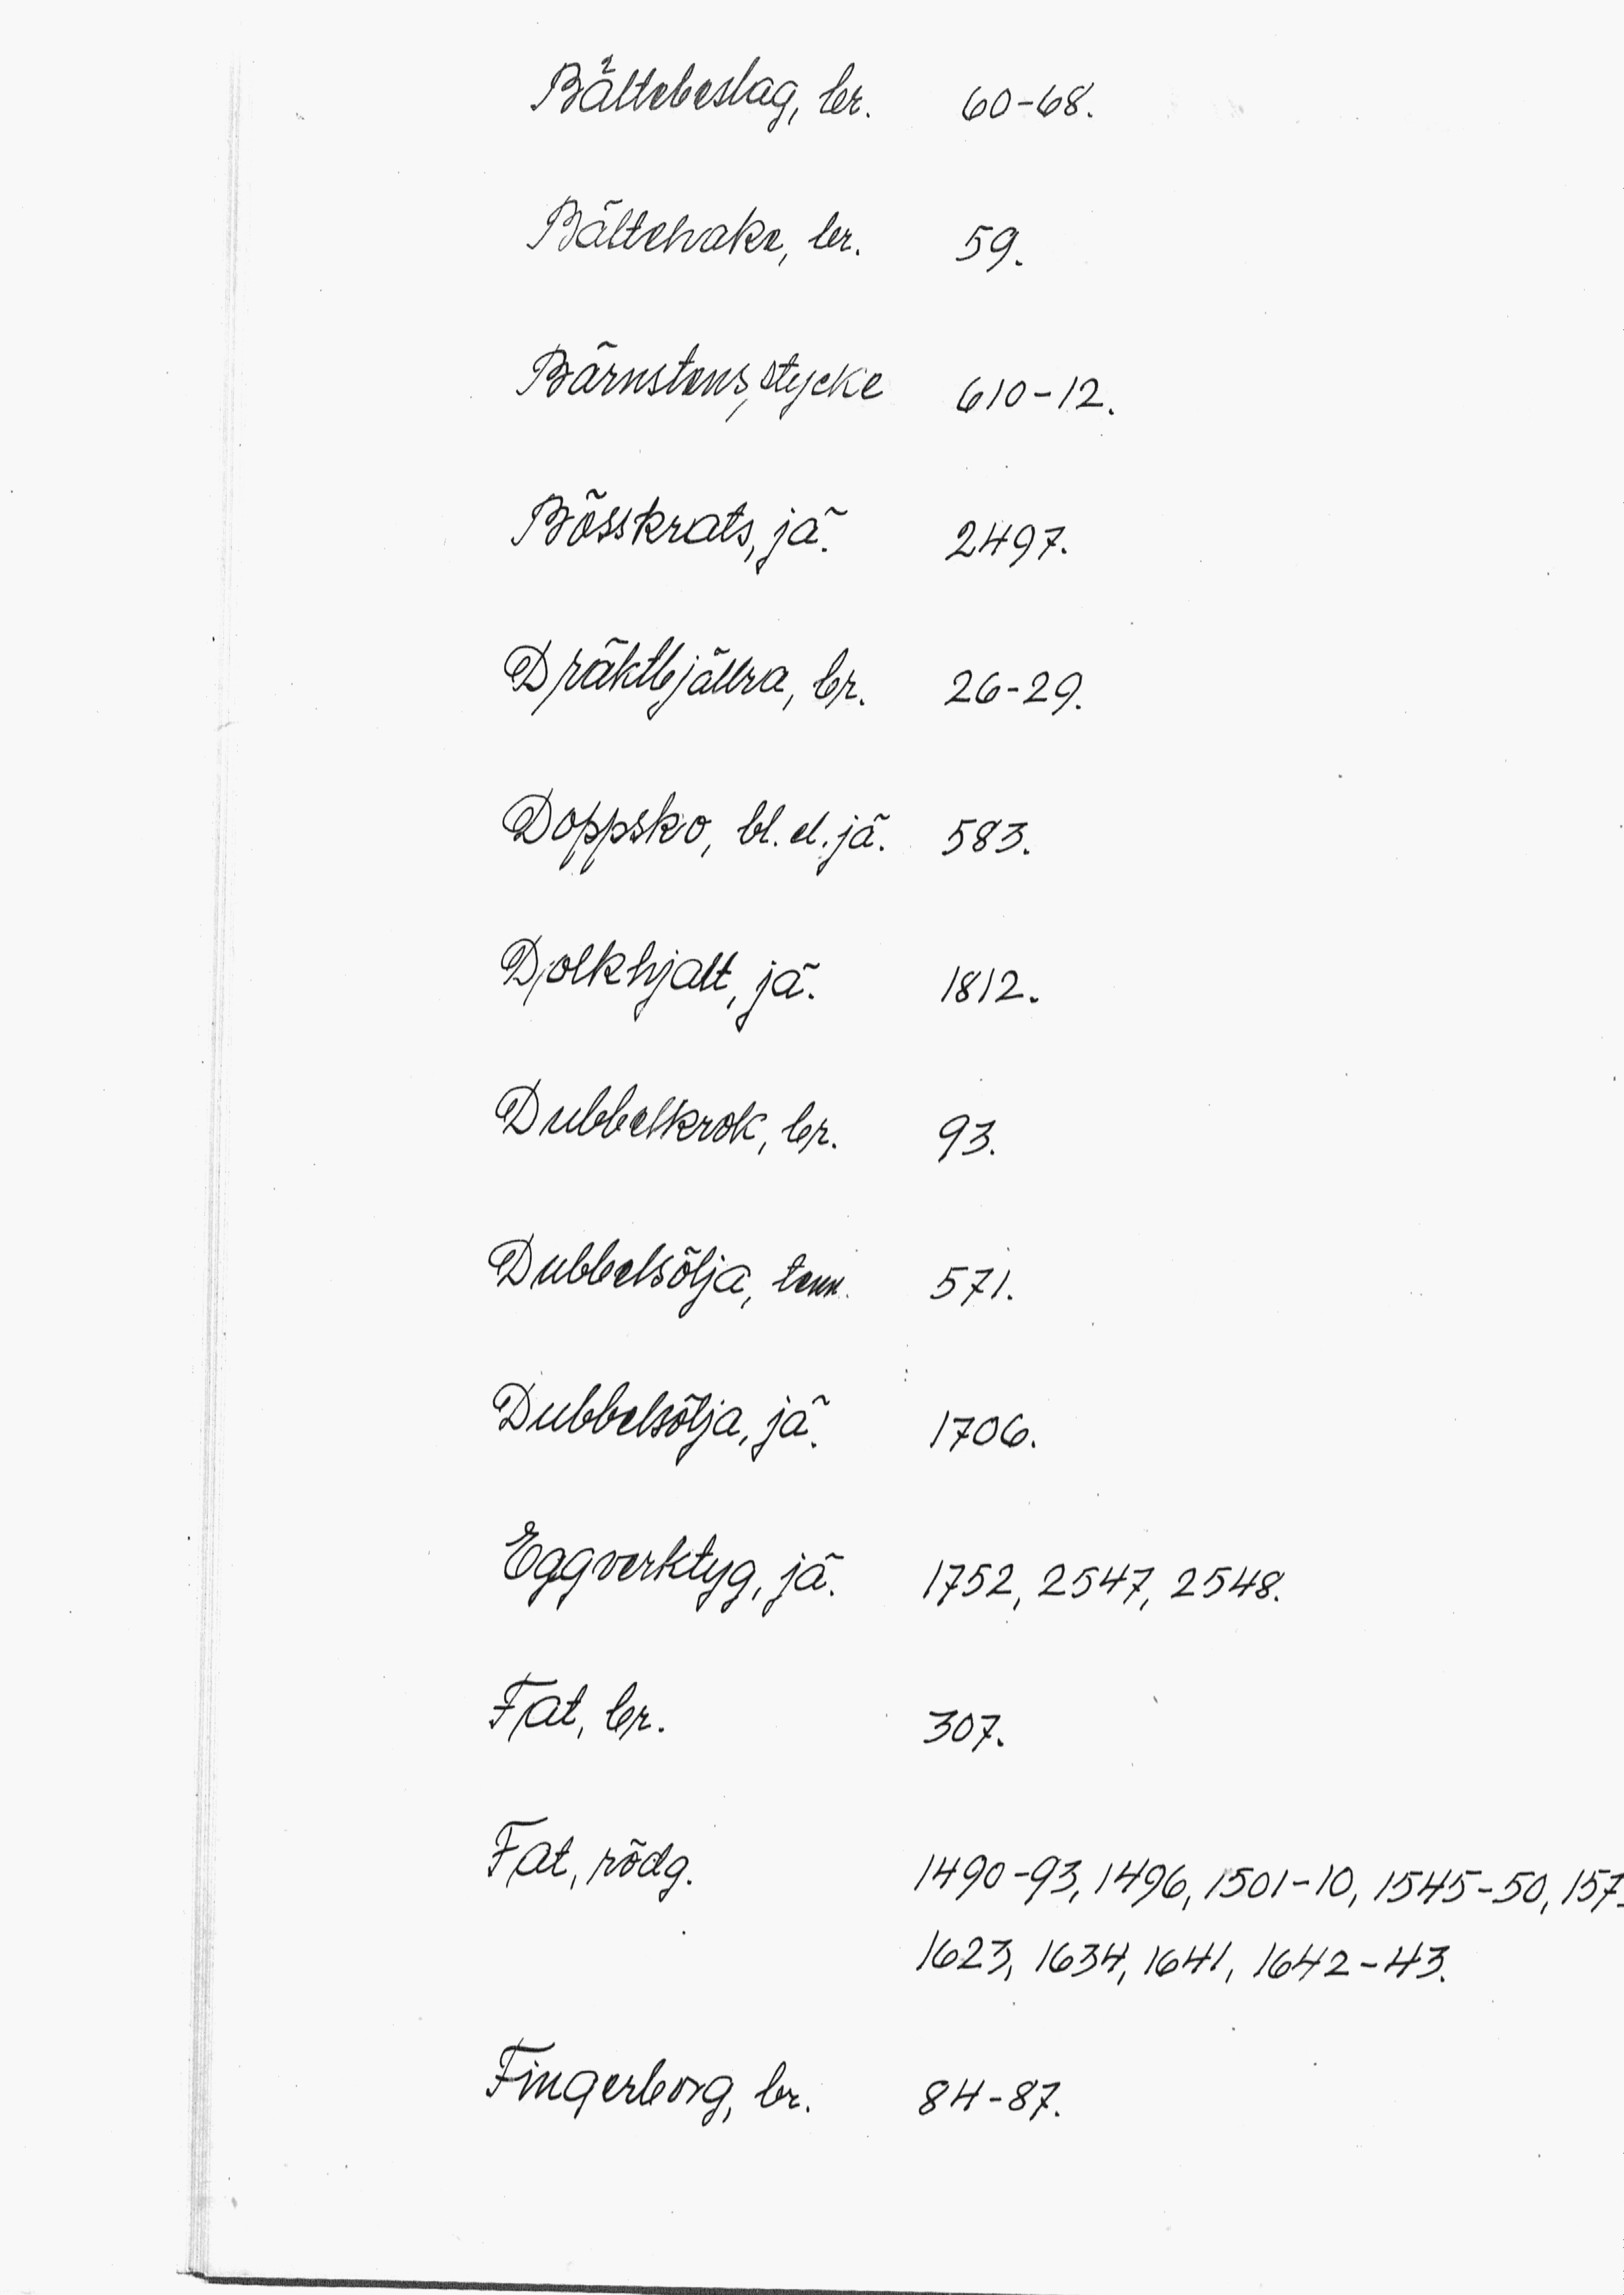 Bältebeslag, br. 60-68.
Bältehake, br. 59.
Bärnstens,stycke 610-12.
Bösskrats, jä. 2497.
Dräktbjällra, br. 26-29.
Doppsko, bl. el. jä. 583.
Dolkhjalt, jä. 1812.
Dubbelkrok, br. 93.
Dubbelsölja, tenn. 571.
Dubbelsölja, jä. 1706.
Eggverktyg, jä. 1752, 2547, 2548.
Fat, br. 307.
Fat, rödg. 1490-93, 1496, 1501-10, 1545-50,
1623, 1634, 1641, 1642-43.
Fingerborg, br. 84-87.